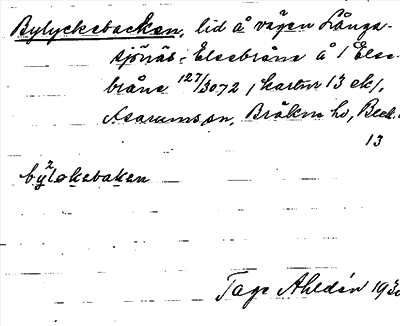 Bylyckebacken, lid å vägen Långa-
sjönäs - Elsebråne å / Else-
bråne 127/3072 / kartnr 13 ek/,
Asarums sn, Bräkne hd, Blek.
13
bylekebaken
Tage Ahldén 1930